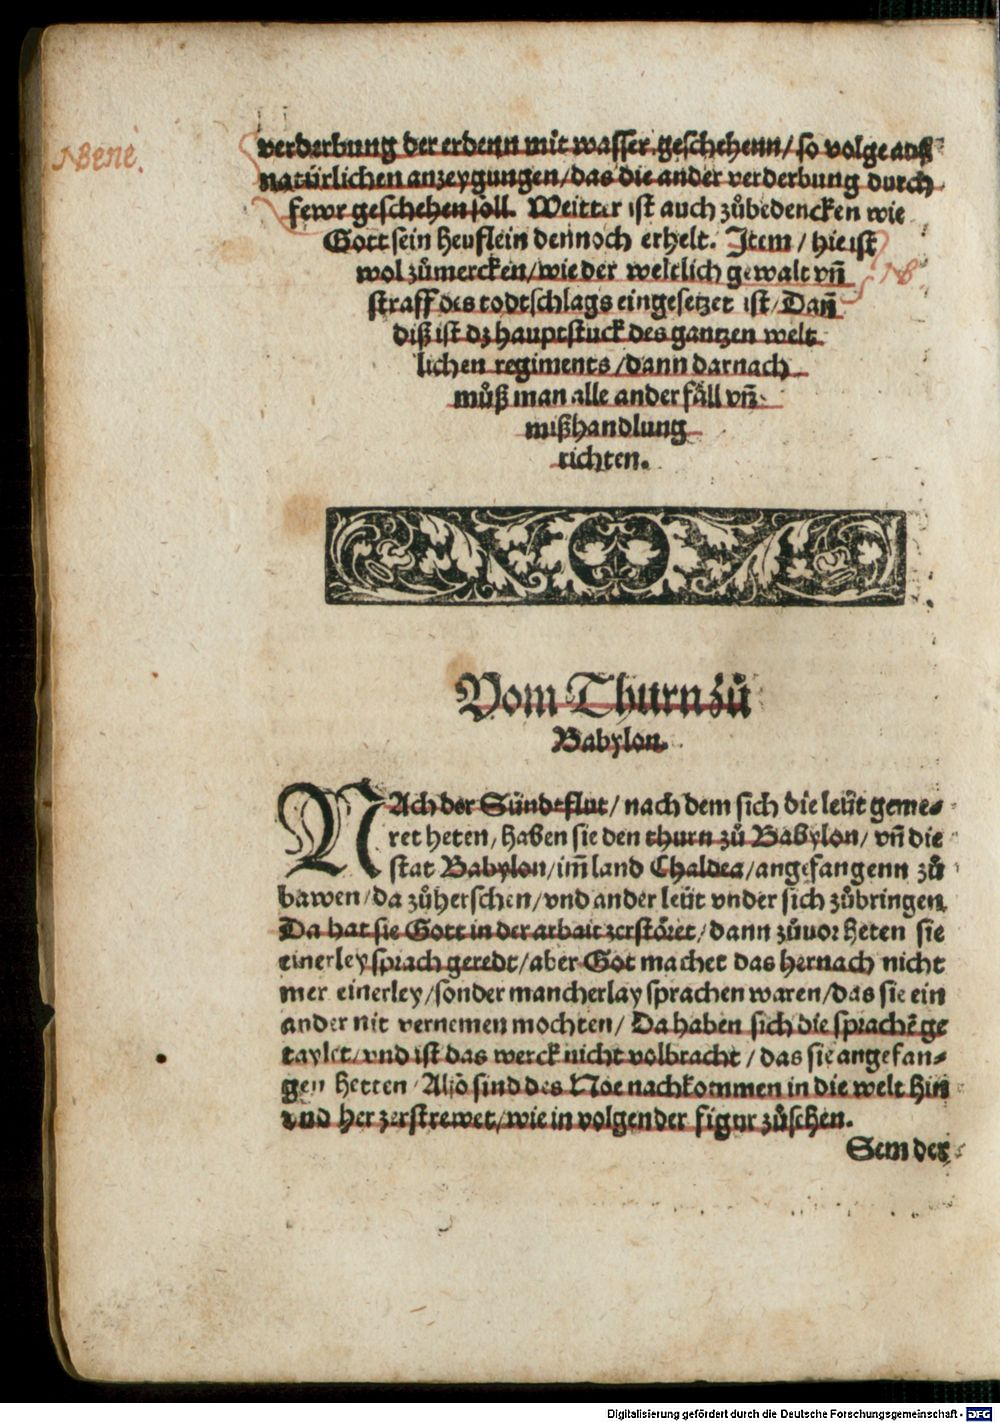 NBene.
verderbung der erdenn mit wasser geschehenn/ so volge auß
natürlichen anzeygungen/das die ander verderbung durch
fewr geschehen soll. Weitter ist auch zůbedencken wie
Gott sein heuflein dennoch erhelt. Item/ hie ist
NB
wol zůmercken/wie der weltlich gewalt vñ
straff des todtschlags eingesetzet ist/Dañ
diß ist dz hauptstuck des gantzen welt
lichen regiments/dann darnach
můß man alle ander fäll vñ
mißhandlung
richten.
Vom Thurn zů
Babylon.
NAch der Sündtflut/ nach dem sich die leüt geme⸗
ret heten, haben sie den thurn zů Babylon/ vñ die
stat Babylon/im̃ land Chaldea/angefangenn zů
bawen/da zůherschen/vnd ander leüt vnder sich zůbringen.
Da hat sie Gott in der arbait zerstöret/dann zůuor heten sie
einerley sprach geredt/aber Got machet das hernach nicht
mer einerley/sonder mancherlay sprachen waren/das sie ein
ander nit vernemen mochten/ Da haben sich die sprachẽ ge
taylet/vnd ist das werck nicht volbracht/das sie angefan⸗
gen hetten/Also sind des Noe nachkommen in die welt hin
vnd her zerstrewet/wie in volgender figur zůsehen.
Sem der
Digitalisierung gefördert durch die Deutsche Forschungsgemeinschaft - DFG